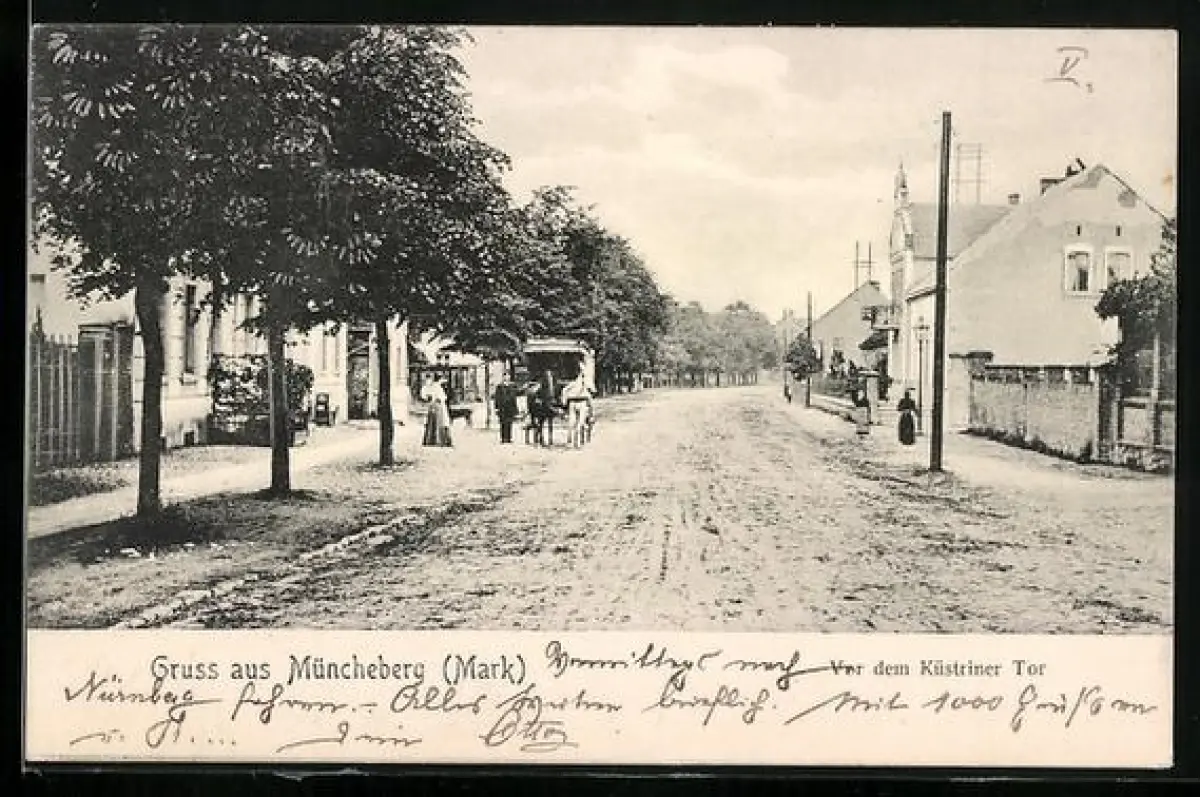 V.
Gruss aus Müncheberg (Mark) Vormittags nach Vor dem Küstriner Tor
Nürnberg fahren. - Alles Weitere brieflich. Mit 1000 Grüßen
u. K.... Dein Otto